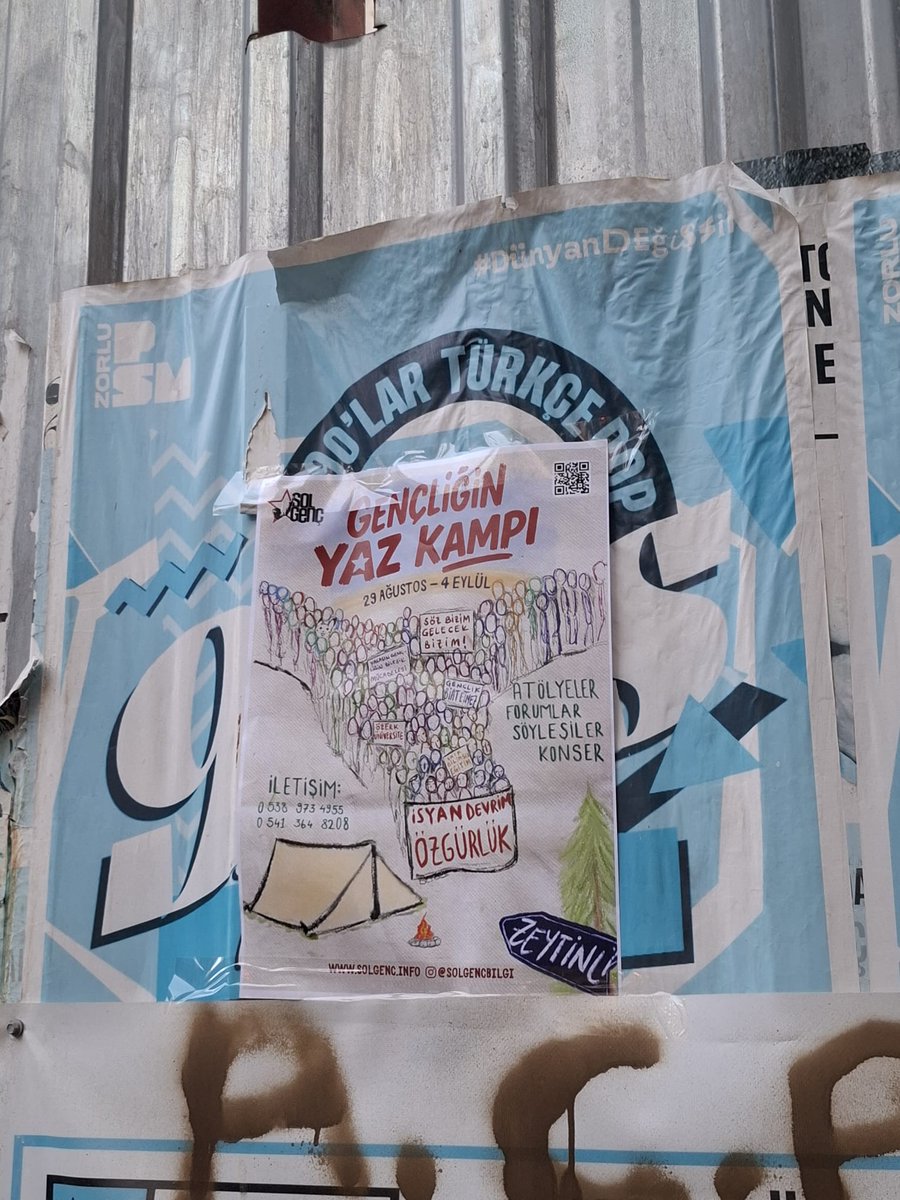 #DünyanDEğişsin
ZORLU
PSM
90'LAR TÜRKÇE POP
90s
ZORLU
SOL
GENÇ
GENÇLİĞİN
YAZ KAMPI
29 AĞUSTOS – 4 EYLÜL
SÖZ BİZİM
GELECEK
BİZİM!
GENÇLİK
ÖZERK
ÜNİVERSİTE
ATÖLYELER
FORUMLAR
SÖYLEŞİLER
KONSER
İLETİŞİM:
0 538 973 4955
0 541 364 8208
İSYAN DEVRİM
ÖZGÜRLÜK
ZEYTİNLİ
WWW.SOLGENC.INFO @SOLGENCBILGI